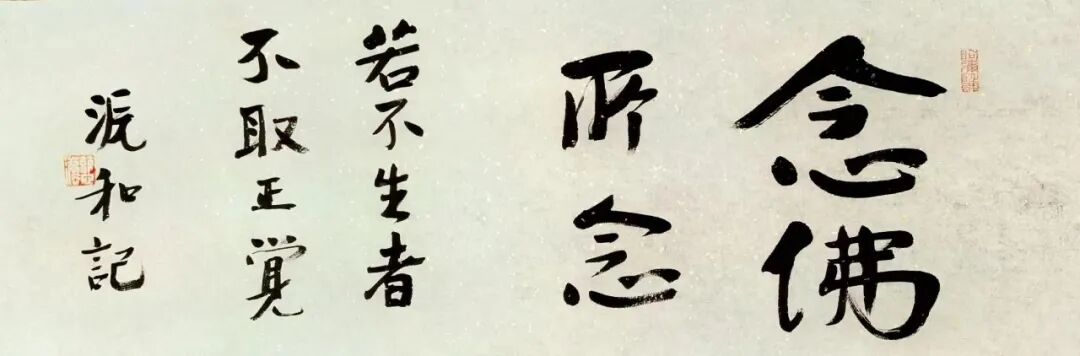 念佛
所念
若不生者
不取正覚
和記